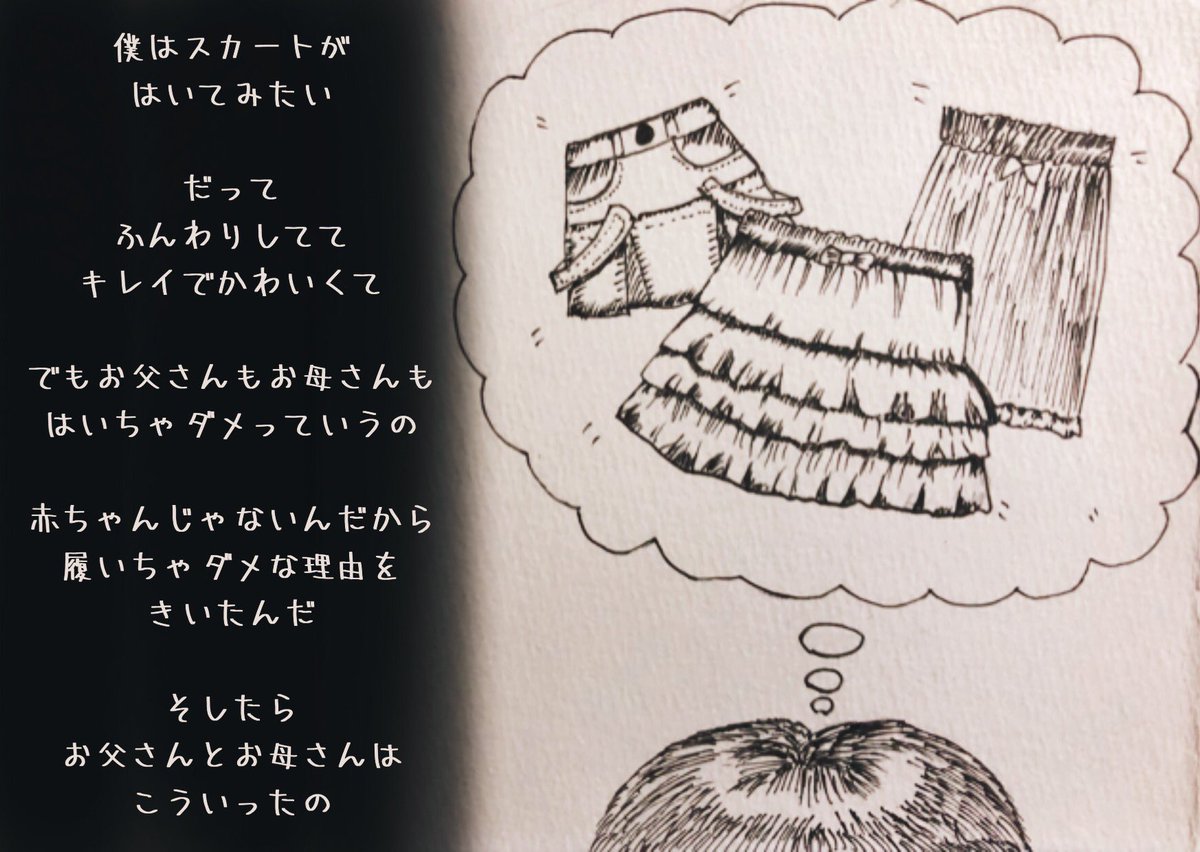 僕はスカートが
はいてみたい
だって
ふんわりしてて
キレイでかわいくて
でもお父さんもお母さんも
はいちゃダメっていうの
赤ちゃんじゃないんだから
履いちゃダメな理由を
きいたんだ
そしたら
お父さんとお母さんは
こういったの